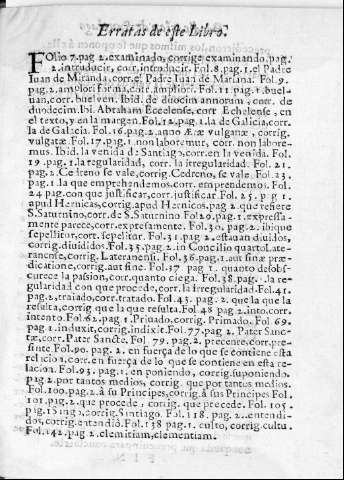 Erratas de este Libro.
FOlio 7. pag 2. examinado, corrige examinando. pag.
2. introducir, corr. introducir. Fol. 8. pag. 1. el Padre
Iuan de Miranda, corr. el Padre Iuan de Mariana. Fol. 9.
pag. 2. amplori forma, corr. ampliori. Fol. 11. pag. 1. buel-
uan, corr. buelven. Ibid. de duocim annorum, corr. de
duodecim. Ibi. Abraham Ecelense, corr. Echelense, en
el texto, y en la margen. Fol. 12. pag. 1. la de Galicia, corr.
la de Galacia. Fol. 16. pag. 2. anno Æræ vulganæ, corrig.
vulgatæ. Fol. 17. pag. 1. non laboremur, corr. non labore-
mus. Ibid. la venida de Santiago, corr. en la venida. Fol.
19. pag. 1. la regularidad, corr. la irregularidad. Fol. 21.
pag. 2. Cedreno se vale, corrig. Cedreno, se vale. Fol. 23.
pag. 1. la que emprehendemos, corr. emprendemos. Fol.
24. pag. con que justificar, corr. justificar. Fol. 25. pag 1.
apud Hernicas, corrig. apud Hernicos. pag. 2. que refiere
S. Saturnino, corr. de S. Saturnino. Fol 29. pag. 1. expressa-
mente parece, corr. expresamente. Fol. 30. pag. 2. ibique
sepellitor, corr. sepelitor. Fol. 31. pag. 2. estauan diuidos,
corrig. diuididos. Fol. 35. pag. 2. in Concilio quarto Late-
ranense, corrig. Lateranensi. Fol. 36. pag. 1. aut sinæ præ-
dicatione, corrig. aut sine. Fol. 37. pag 1. quanto desobs-
curece la passion, corr. quanto ciega. Fol. 38. pag. la re-
gularidad con que procede, corr. la irregularidad. Fol. 41.
pag. 2. traiado, corr. tratado. Fol. 43. pag. 2. que la que la
resulta, corrig que la que resulta. Fol. 48 pag 2. into, corr.
intento. Fol. 62. pag. 1. Priuado, corrig. Primado. Fol. 69.
pag. 1. induxit, corrig. indixit. Fol. 77. pag 2. Pater Sanc-
tæ, corr. Pater Sancte. Fol. 79. pag. 2. precente, corr. pre-
sente. Fol. 90. pag. 2. en fuerça de lo que se contiene esta
relicion, corr. en fuerça de lo que se contiene en esta re-
lacion. Fol. 93. pag. 1. en poniendo, corrig. suponiendo.
pag 2. por tantos medios, corrig. que por tantos medios.
Fol. 100. pag. 2. à su Principes, corrig. à sus Principes Fol.
101. pag. 2. que procede, corrig. que precede. Fol. 105.
pag. corrig. Santiago. Fol. 118. pag. 2. entendi-
dos, corrig. entendió. Fol. 138 pag 1. culto, corrig. cultu.
Fol. 142. pag 2. elemitiam, clementiam.